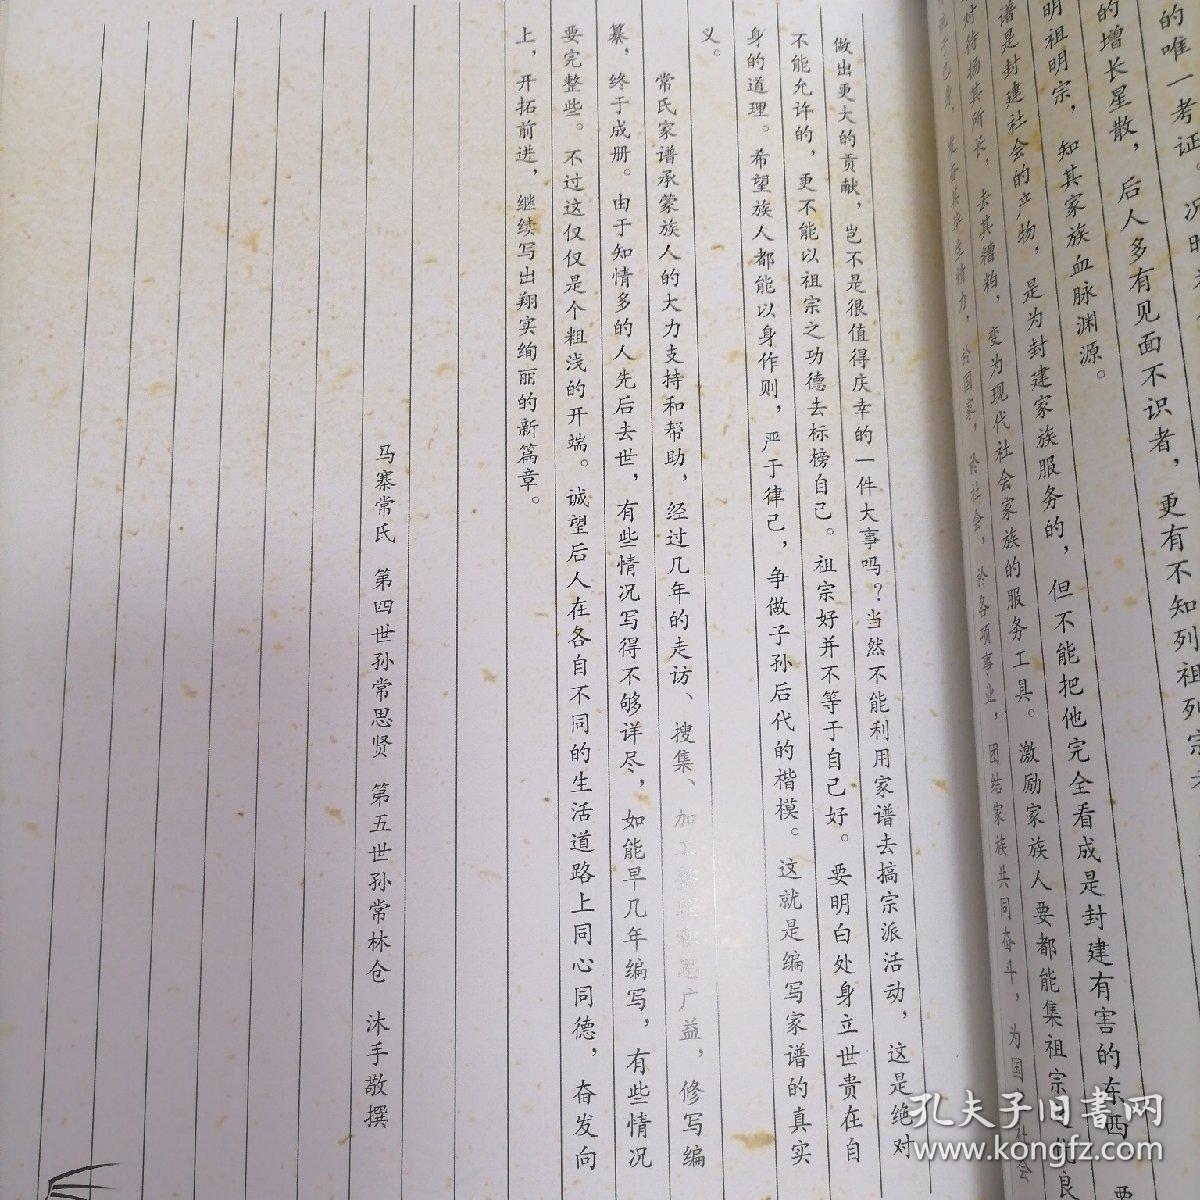 的唯一考证。况时
的增长星散，后人多有见面不识者，更有不知列祖列宗
明祖明宗，知其家族血脉渊源。
谱是封建社会的产物，是为封建家族服务的，但不能把他完全看成是封建有害的东西
对待扬其所长，去其糟粕，变为现代社会家族的服务工具。激励家族人要都能集祖宗
精力，於国家，於社会，於各项事业，团结家族共同奋斗，为国
做出更大的贡献，岂不是很值得庆幸的一件大事吗？当然不能利用家谱去搞宗派活动，这是绝对
不能允许的，更不能以祖宗之功德去标榜自己。祖宗好并不等于自己好。要明白处身立世贵在自
身的道理。希望族人都能以身作则，严于律己，争做子孙后代的楷模。这就是编写家谱的真实
义。
常氏家谱承蒙族人的大力支持和帮助，经过几年的走访、搜集、加工整理积思广益，修写编
纂，终于成册。由于知情多的人先后去世，有些情况写得不够详尽，如能早几年编写，有些情况
要完整些。不过这仅仅是个粗浅的开端。诚望后人在各自不同的生活道路上同心同德，奋发向
上，开拓前进，继续写出翔实绚丽的新篇章。
马寨常氏 第四世孙常思贤 第五世孙常林仓 沐手敬撰
孔夫子旧书网
www.kongfz.com